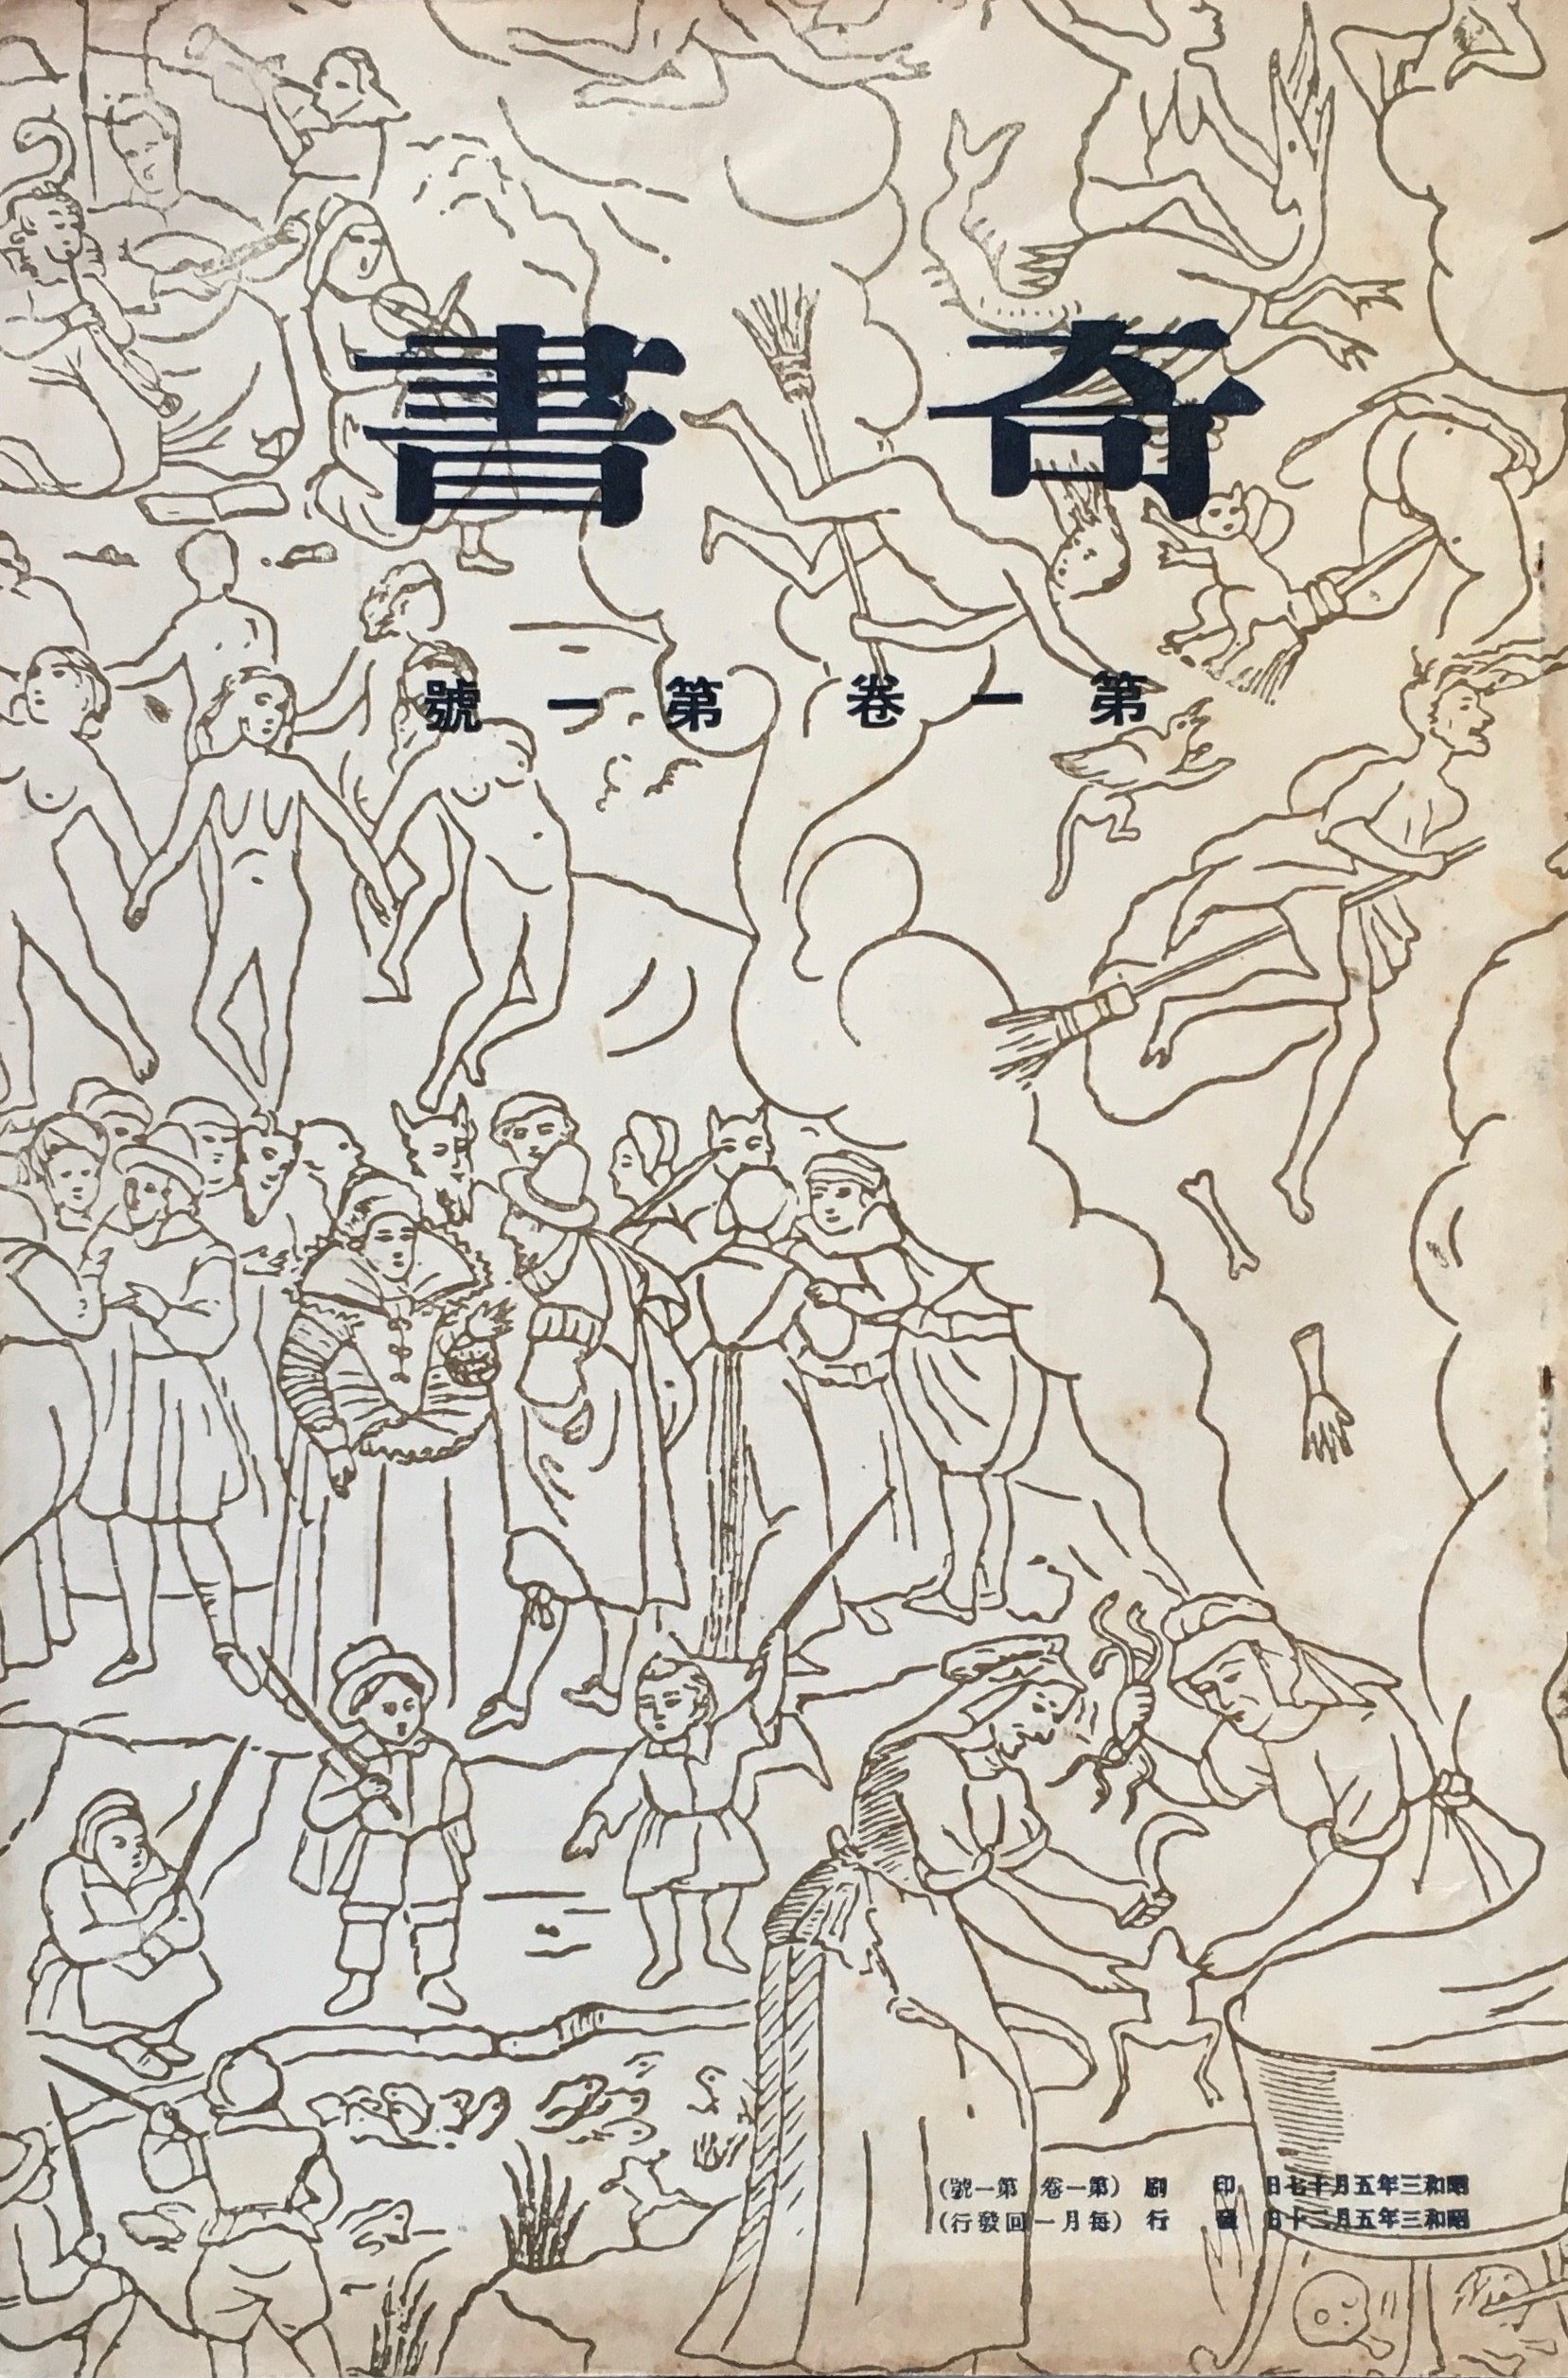 奇書
第一卷 第一號
昭和三年五月十七日 印 刷 (第一卷 第一號)
昭和三年五月二十日 發 行 (每月一回發行)